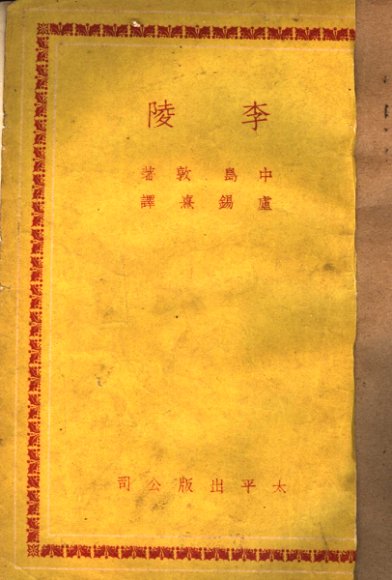 李陵
中島敦著
盧錫熹譯
太平出版公司